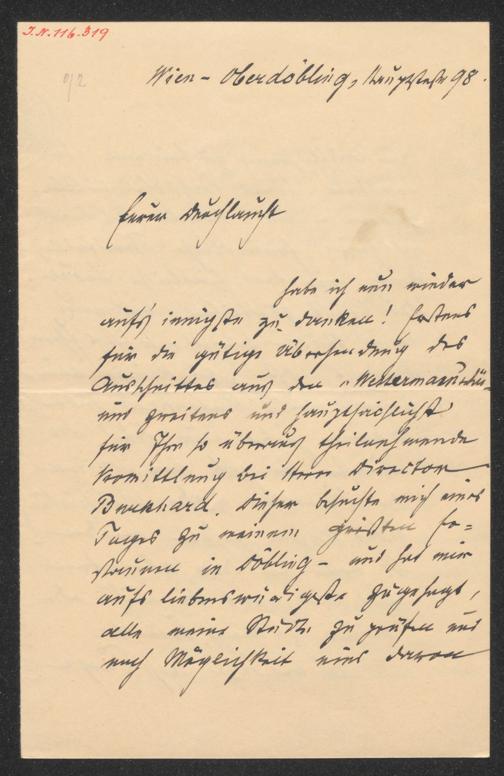 I.N. 116.319
92
Wien – Oberdöbling, Hauptstraße 98.
Euer Durchlaucht
habe ich nun wieder
aufs innigste zu danken! Erstens
für die gütige Übersendung des
Ausschnittes aus den „Westermann
und zweitens und hauptsächlichst
für Ihre so überaus theilnehmende
Vermittlung bei Herrn Director
Burckhard. Dieser besuchte mich eines
Tages zu meinem größten Er=
staunen in Döbling – und hat mir
aufs liebenswürdigste zugesagt,
alle meine Stücke zu prüfen und
nach Möglichkeit eines davon